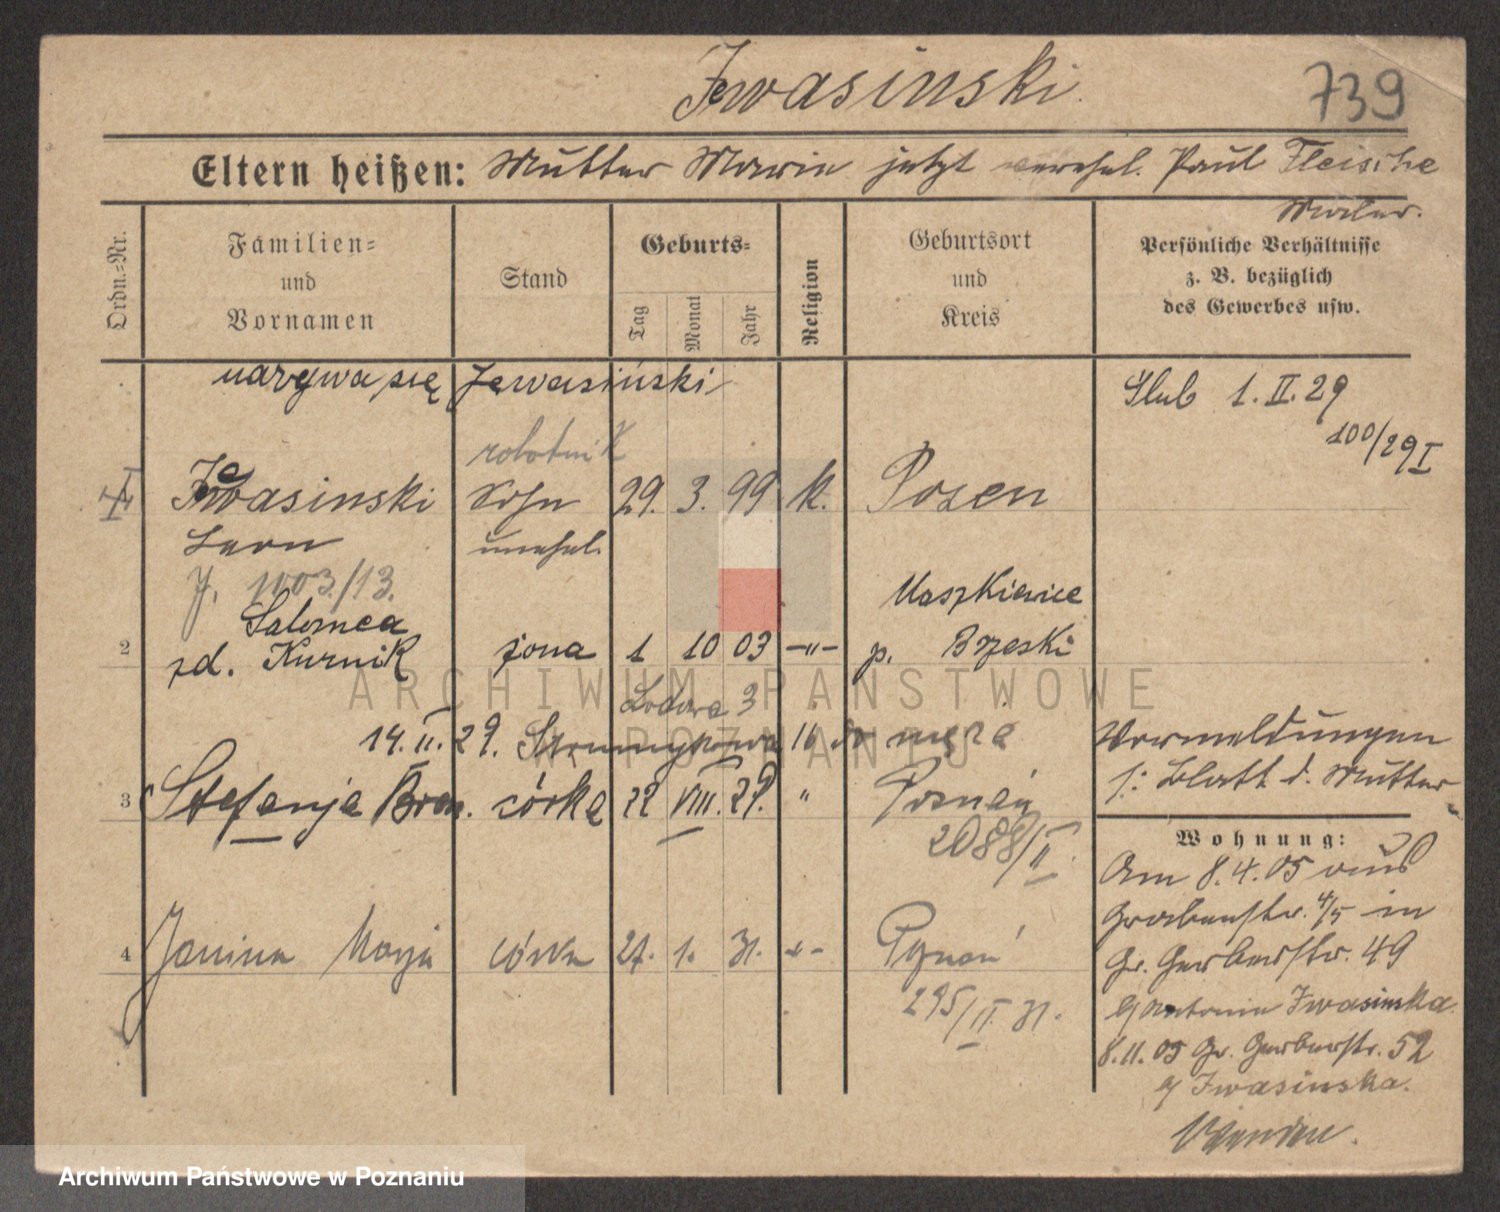 Iwasinski.
739
Eltern heißen: Mutter Marie jetzt verehel. Paul Fleische
Maler.
Ordn.=Nr.
Familien=
und
Vornamen
Stand
Geburts=
Tag
Monat
Jahr
Religion
Geburtsort
und
Kreis
Persönliche Verhältnisse
z. B. bezüglich
des Gewerbes usw.
nazywa się Jewasiński
Ślub 1. II. 29
100/29 I
robotnik
1 Iwasinski Sohn 29. 3. 99 k. Posen
Leon unehel.
J. 1003/13.
Salomea Maszkienice
2 zd. Kurnik żona 1 10 03 -"- p. Brzeski
Lodowa 3
14. II. 29. 16 do męża
Vormeldungen
s: Blatt d. Mutter
3 Stefanja Bron. córka 22 VIII. 29. " Poznań
2088/II.
Wohnung:
Am 8.4.05 aus
Grabenstr. 4/5 in
Gr. Gerberstr. 49
b/ Antonie Iwasinska.
8.11.05 Gr. Gerberstr. 52
b/ Iwasinska.
4 Janina Marja córka 27. 1. 31. -"- Poznań
295/II. 31.
ARCHIWUM PAŃSTWOWE
W POZNANIU
Archiwum Państwowe w Poznaniu